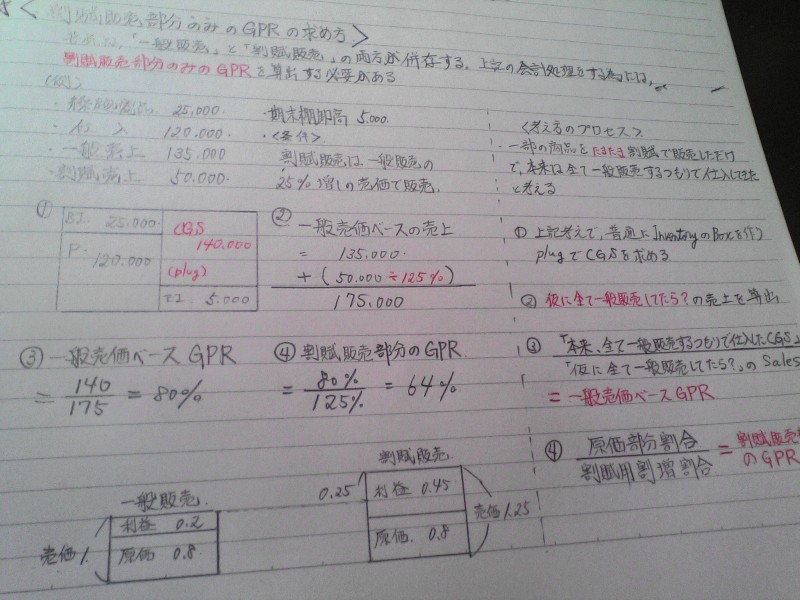 <割賦販売部分のみのGPRの求め方>
「一般販売」と「割賦販売」の両方が併存する。上記の会計処理をする為には、
割賦販売部分のみのGPRを算出する必要がある
(例)
25,000.
・仕入 120,000.
・一般売上 135,000
・割賦売上 50,000.
・期末棚卸高 5,000.
・<条件>
割賦販売は一般販売の
25%増しの売価で販売.
<考え方のプロセス>
・一部の商品をたまたま割賦で販売しただけ
で、本来は全て一般販売するつもりで仕入してきた
と考える
①
BI 25,000.
P. 120,000
CGS
140,000
(plug)
EI 5,000
② 一般売価ベースの売上
= 135,000.
+(50,000÷125%)
175,000
① 上記考えで、普通にInventoryのBoxを作り
plugでCGSを求める
② 仮に全て一般販売してたら?の売上を算出
③ 一般売価ベースGPR
= 140/175 = 80%
④ 割賦販売部分のGPR
= 80%/125% = 64%
③ 「本来、全て一般販売するつもりで仕入したCGS」
「仮に全て一般販売してたら?」のSales
= 一般売価ベースGPR
④ 原価部分割合/割賦用割増割合 = 割賦販売
のGPR
一般販売.
利益 0.2
原価 0.8
売価 1.
割賦販売.
0.25
利益 0.45
原価. 0.8
売価 1.25